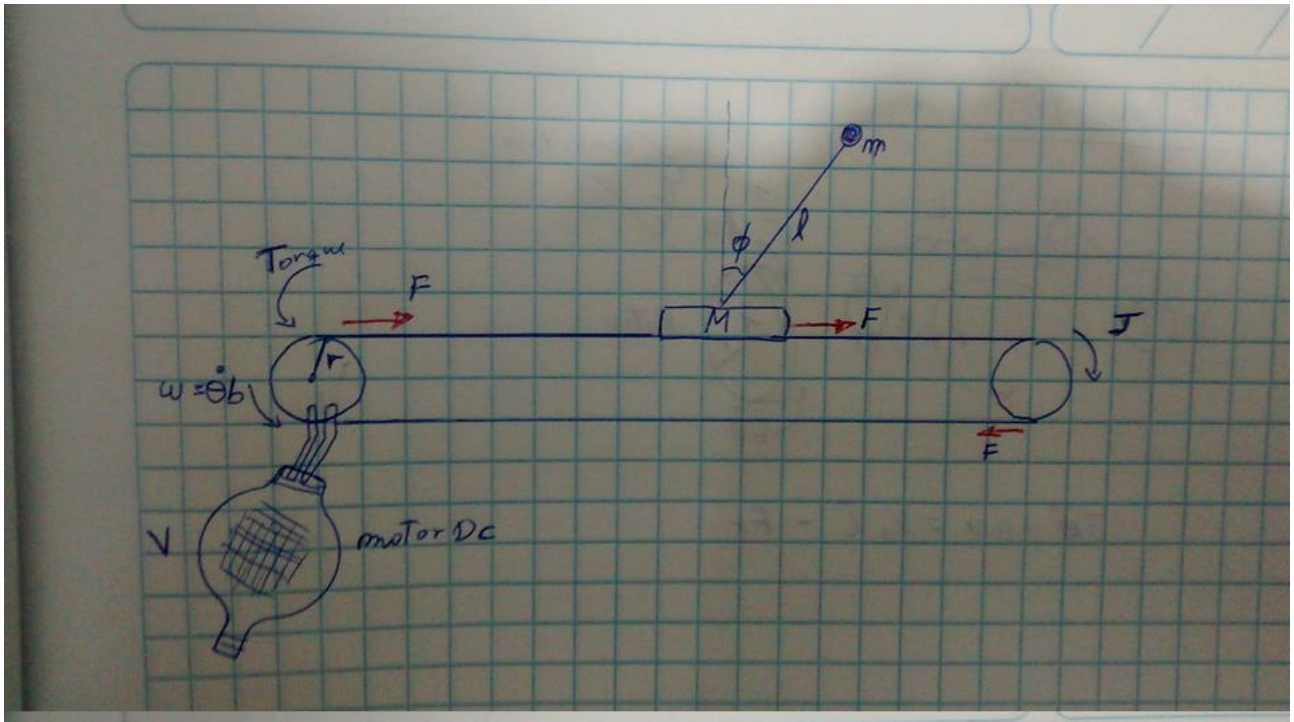 m
l
ϕ
Torque
F
M
F
J
r
ω = θ̇b
F
V
motor Dc